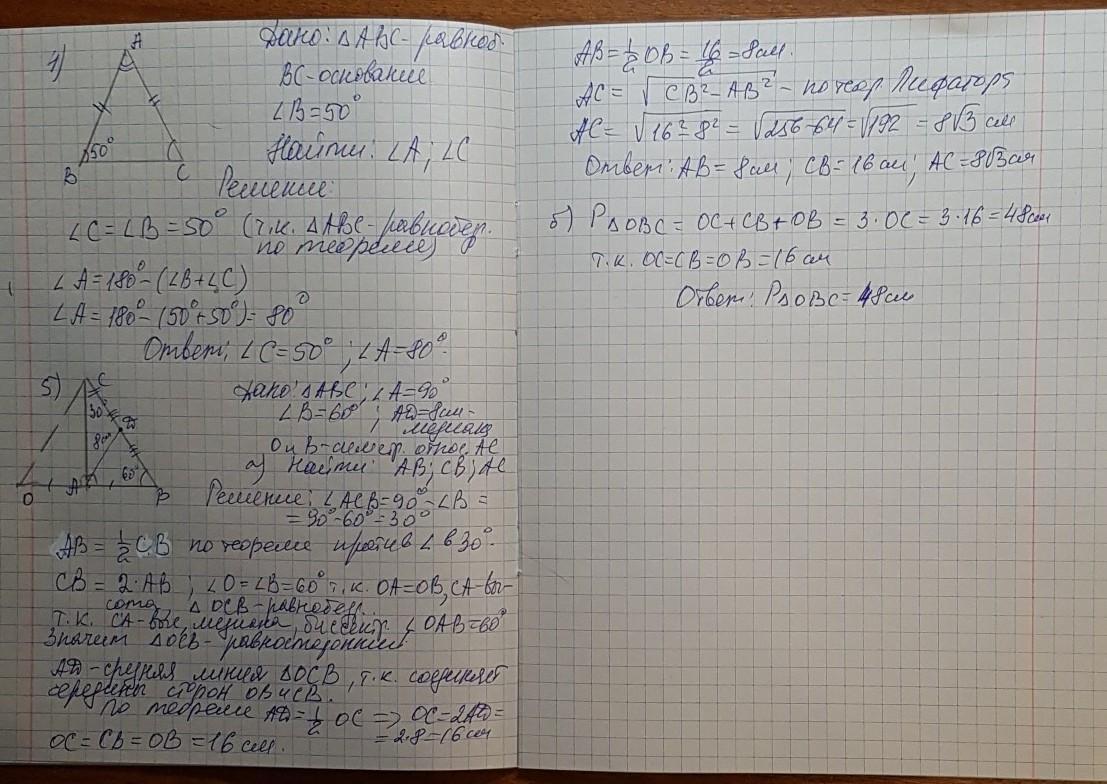 1)
A
B
50°
C
Дано: △ABC-равноб.
BC-основание
∠B=50°
Найти: ∠A; ∠C
Решение:
∠C=∠B=50° (т.к. △ABC-равнобедр.
по теореме)
∠A=180°-(∠B+∠C)
∠A=180°-(50°+50°)=80°
Ответ: ∠C=50°; ∠A=80°.
5)
C
30°
D
8см
60°
O
A
B
Дано: △ABC; ∠A=90°
∠B=60°; AD=8см-
медиана
O и B-симметр. относ. AC
а) Найти: AB; CB; AC
Решение: ∠ACB=90°-∠B=
=90°-60°=30°
AB=½CB по теореме против ∠ в 30°.
CB=2·AB; ∠O=∠B=60° т.к. OA=OB, CA-вы-
сота, △OCB-равнобедр.
т.к. CA-выс, медиана, биссектр. ∠OAB=60°
Значит △OCB-равносторонний
AD-средняя линия △OCB, т.к. соединяет
середины сторон OB и CB.
По теореме AD=½OC => OC=2AD=
=2·8=16см
OC=CB=OB=16см.
AB=½OB=16/2=8см.
AC=√CB²-AB² - по теор. Пифагора
AC=√16²-8²=√256-64=√192=8√3см
Ответ: AB=8см; CB=16см; AC=8√3см
б) P△OBC=OC+CB+OB=3·OC=3·16=48см
т.к. OC=CB=OB=16см
Ответ: P△OBC=48см